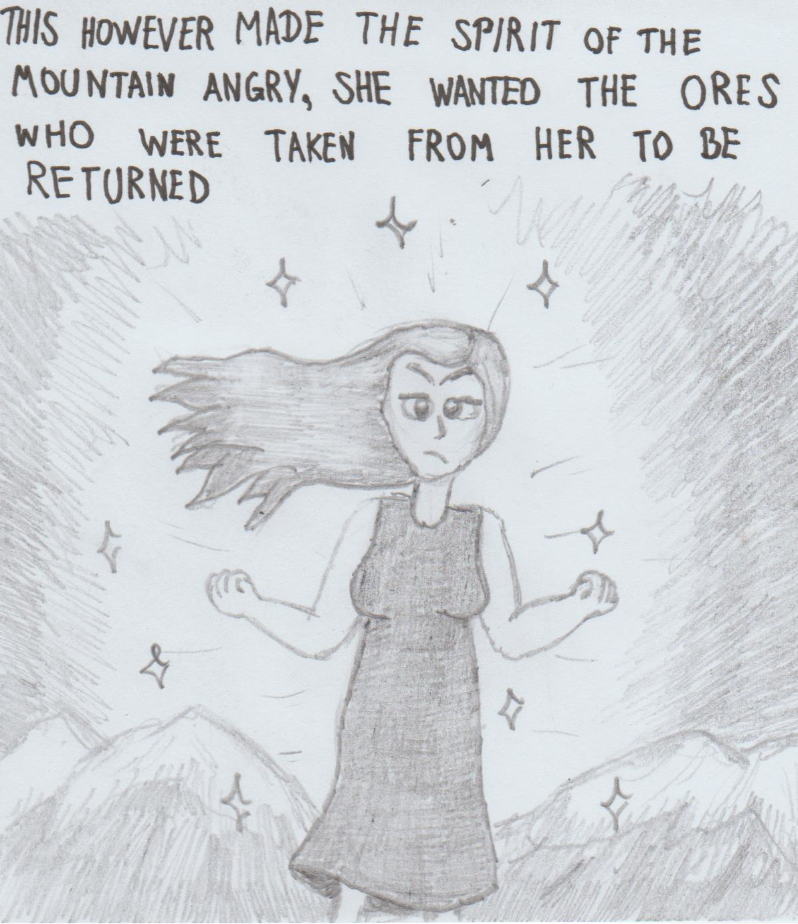 THIS HOWEVER MADE THE SPIRIT OF THE
MOUNTAIN ANGRY, SHE WANTED THE ORES
WHO WERE TAKEN FROM HER TO BE
RETURNED